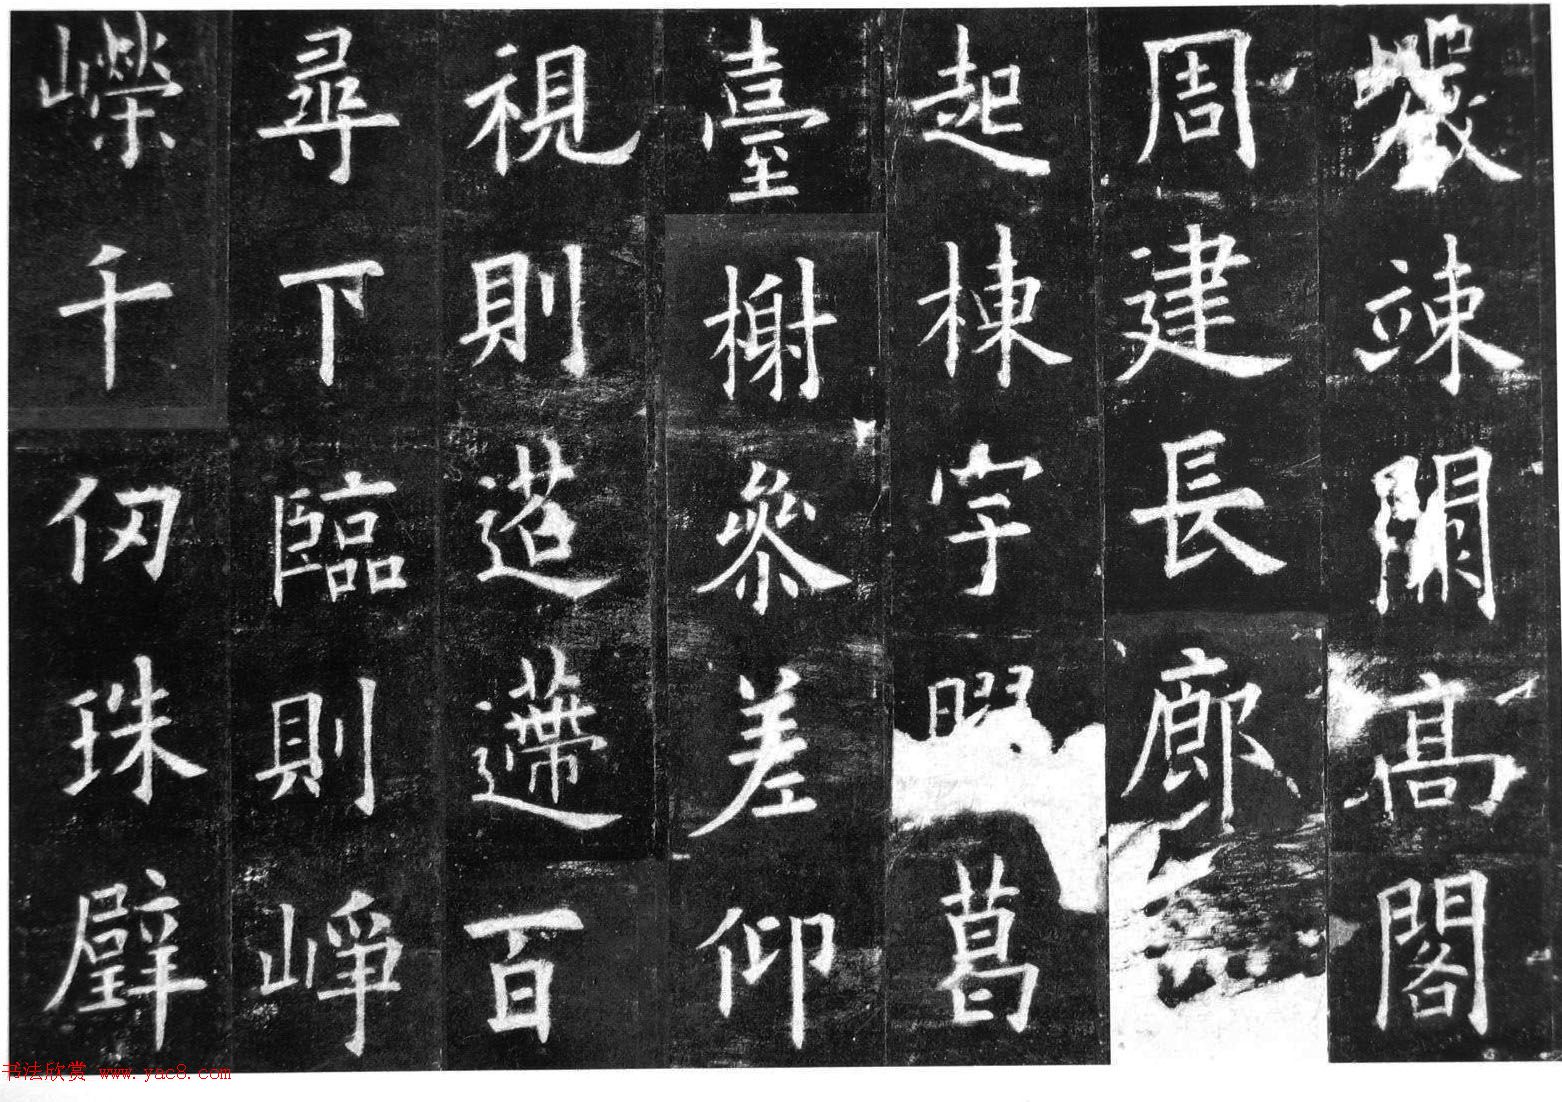 竦闕高閣
周建長廊
起棟宇膠葛
臺榭參差仰
視則迢遰百
尋下臨則崢
嶸千仞珠璧
书法欣赏 www.yac8.com